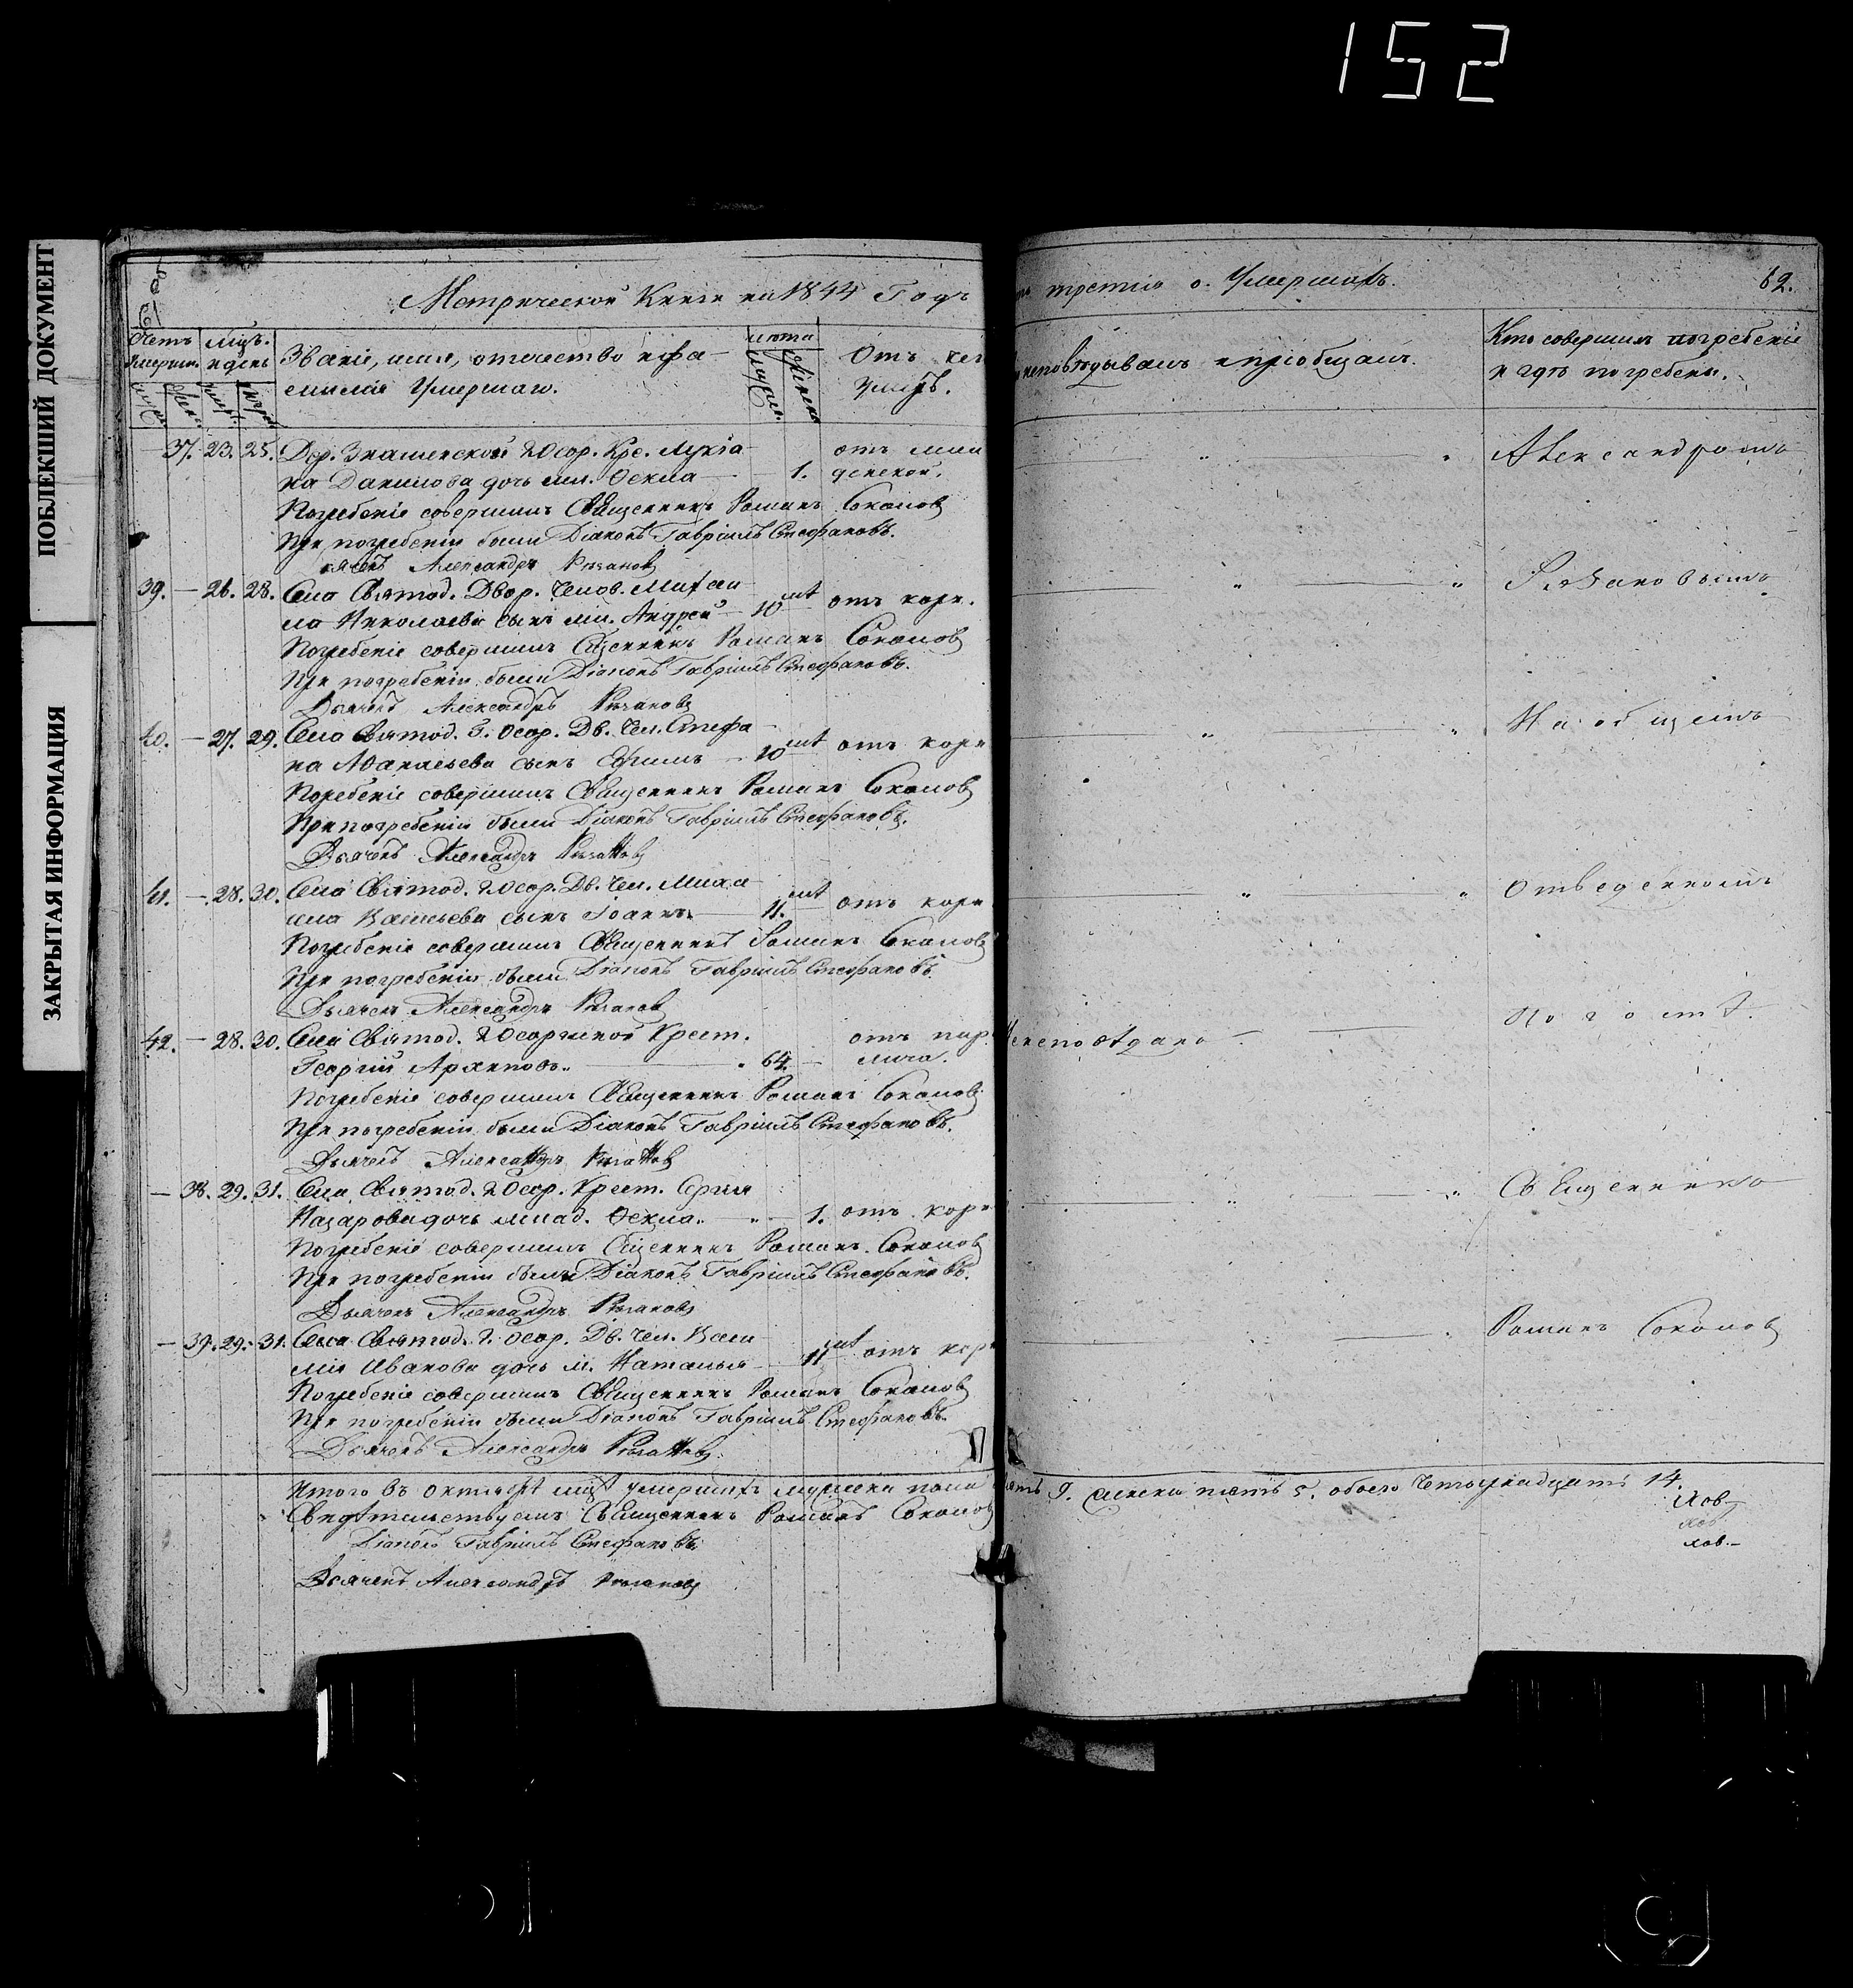 152
ПОБЛЕКШИЙ ДОКУМЕНТ
ЗАКРЫТАЯ ИНФОРМАЦИЯ
Метрической Книги на 1844 Годъ
третія о Умершихъ.
62.
Счетъ умерши.
мцъ. и день
Званіе, имя, отечество и фа-
милія Умершаго.
лѣта
Отъ чего
умеръ.
исповѣдывалъ и пріобщалъ.
Кто совершилъ погребеніе
и гдѣ погребены.
37. 23. 25. Дер. Знаменской 2 Осор. Кре. Лукіа
на Данилова дочь мл. Ѳекла — 1. отъ мла
денской.
Погребеніе совершилъ Священникъ Романъ Соколовъ
При погребеніи были Діаконъ Гавріилъ Стефановъ.
дячекъ Александръ Рязановъ
Александромъ
39. — 26. 28. Села Святод. Двор. Челов. Михаи
ла Николаева сынъ мл. Андрей — 10 мѣ отъ кори.
Погребеніе совершилъ Сщенникъ Романъ Соколовъ
При погребеніи были Діаконъ Гавріилъ Стефановъ.
Дьячекъ Александръ Рязановъ
Рязановымъ
40. — 27. 29. Села Святод. 3. Осор. Дв. Чел. Стефа
на Аѳанасьева сынъ Ефимъ — 10 мѣ отъ кори
Погребеніе совершилъ Священникъ Романъ Соколовъ
При погребеніи были Діаконъ Гавріилъ Стефановъ.
Дьячекъ Александръ Рязановъ
На общемъ
41. — 28. 30. Села Святод. 2 Осор. Дв. Чел. Миха
ила Васильева сынъ Іоаннъ — 11. мѣ отъ кори
Погребеніе совершилъ Священникъ Романъ Соколовъ
При погребеніи были Діаконъ Гавріилъ Стефановъ
Дьячекъ Александръ Рязановъ
отведенномъ
42. — 28. 30. Села Святод. 2 Осоргиной Крест.
Георгій Архиповъ. — 64. — отъ пар
лича.
Неисповѣдано
Погребеніе совершилъ Священникъ Романъ Соколовъ
При погребеніи были Діаконъ Гавріилъ Стефановъ.
Дьячекъ Александръ Рязановъ
погостѣ.
— 38. 29. 31. Села Святод. 2 Осор. Крест. Сергѣя
Назарова дочь млад. Ѳекла. — 1. отъ кори
Погребеніе совершилъ Сщенникъ Романъ Соколовъ
При погребеніи были Діаконъ Гавріилъ Стефановъ.
Дьячекъ Александръ Рязановъ
Священника
— 39. 29. 31. Села Святод. 2. Осор. Дв. Чел. Васи
лія Иванова дочь м. Наталья — 11 мѣ отъ кори
Погребеніе совершилъ Священникъ Романъ Соколовъ
При погребеніи были Діаконъ Гавріилъ Стефановъ.
Дьячекъ Александръ Рязановъ
Романъ Соколовъ
Итого въ октябрѣ мцѣ умершихъ мужеска пола девять 9. женска пять 5. обоего четырнадцать 14.
Свидѣтельствуемъ Священникъ Романъ Соколовъ
Діаконъ Гавріилъ Стефановъ.
Дьячекъ Александръ Рязановъ